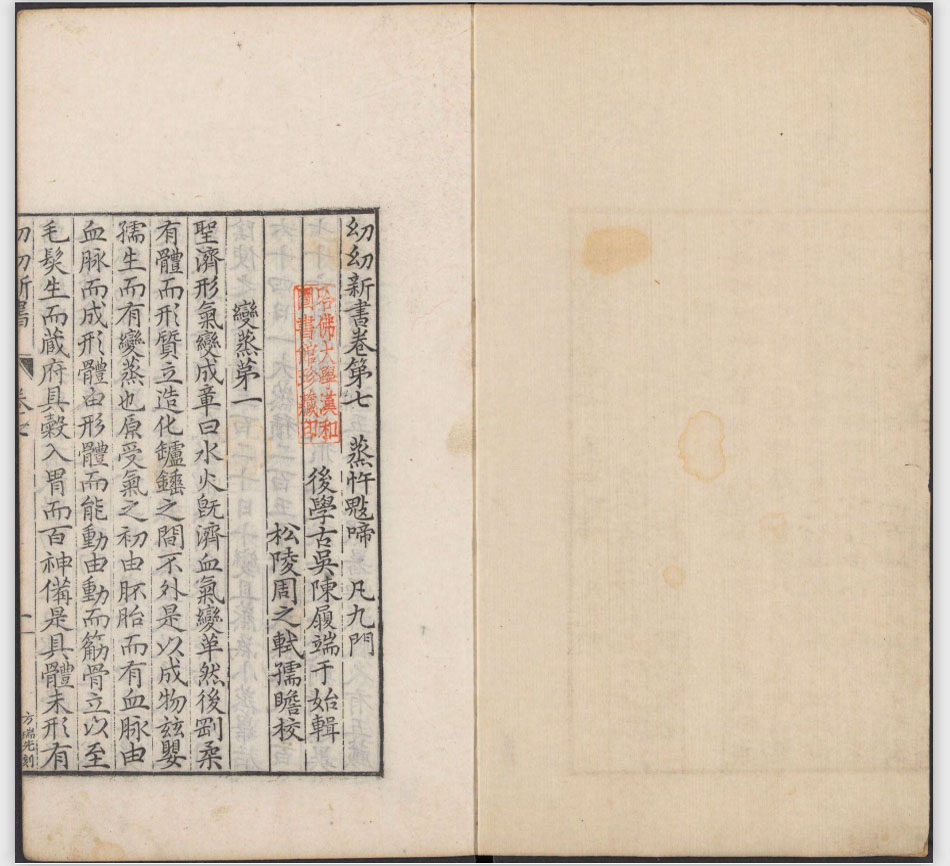 幼幼新書卷第七　蒸忤䰧啼　凡九門
後學古吳陳履端于始輯
松陵周之軾孺瞻校
變蒸第一
聖濟形氣變成章曰水火旣濟血氣變革然後剛柔
有體而形質立造化鑪錘之間不外是以成物玆嬰
孺生而有變蒸也原受氣之初由胚胎而有血脉由
血脉而成形體由形體而能動由動而筋骨立以至
毛髮生而蔵府具穀入胃而百神備是具體未形有
幼幼新書　卷七　一　方瑞先刻
哈佛大學漢和
圖書館珍藏印